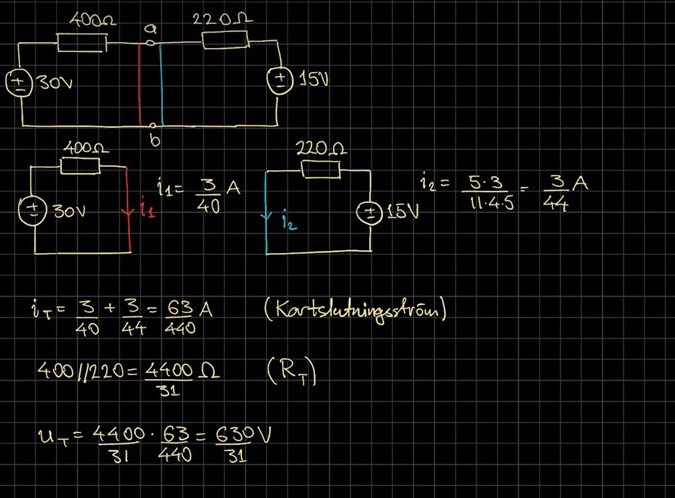 400Ω a 220Ω
30V 15V
b
400Ω 220Ω
30V i₁ i₁ = 3/40 A i₂ 15V i₂ = 5·3/11·4·5 = 3/44 A
i_T = 3/40 + 3/44 = 63/440 A (Kortslutningsström)
400//220 = 4400/31 Ω (R_T)
u_T = 4400/31 · 63/440 = 630/31 V